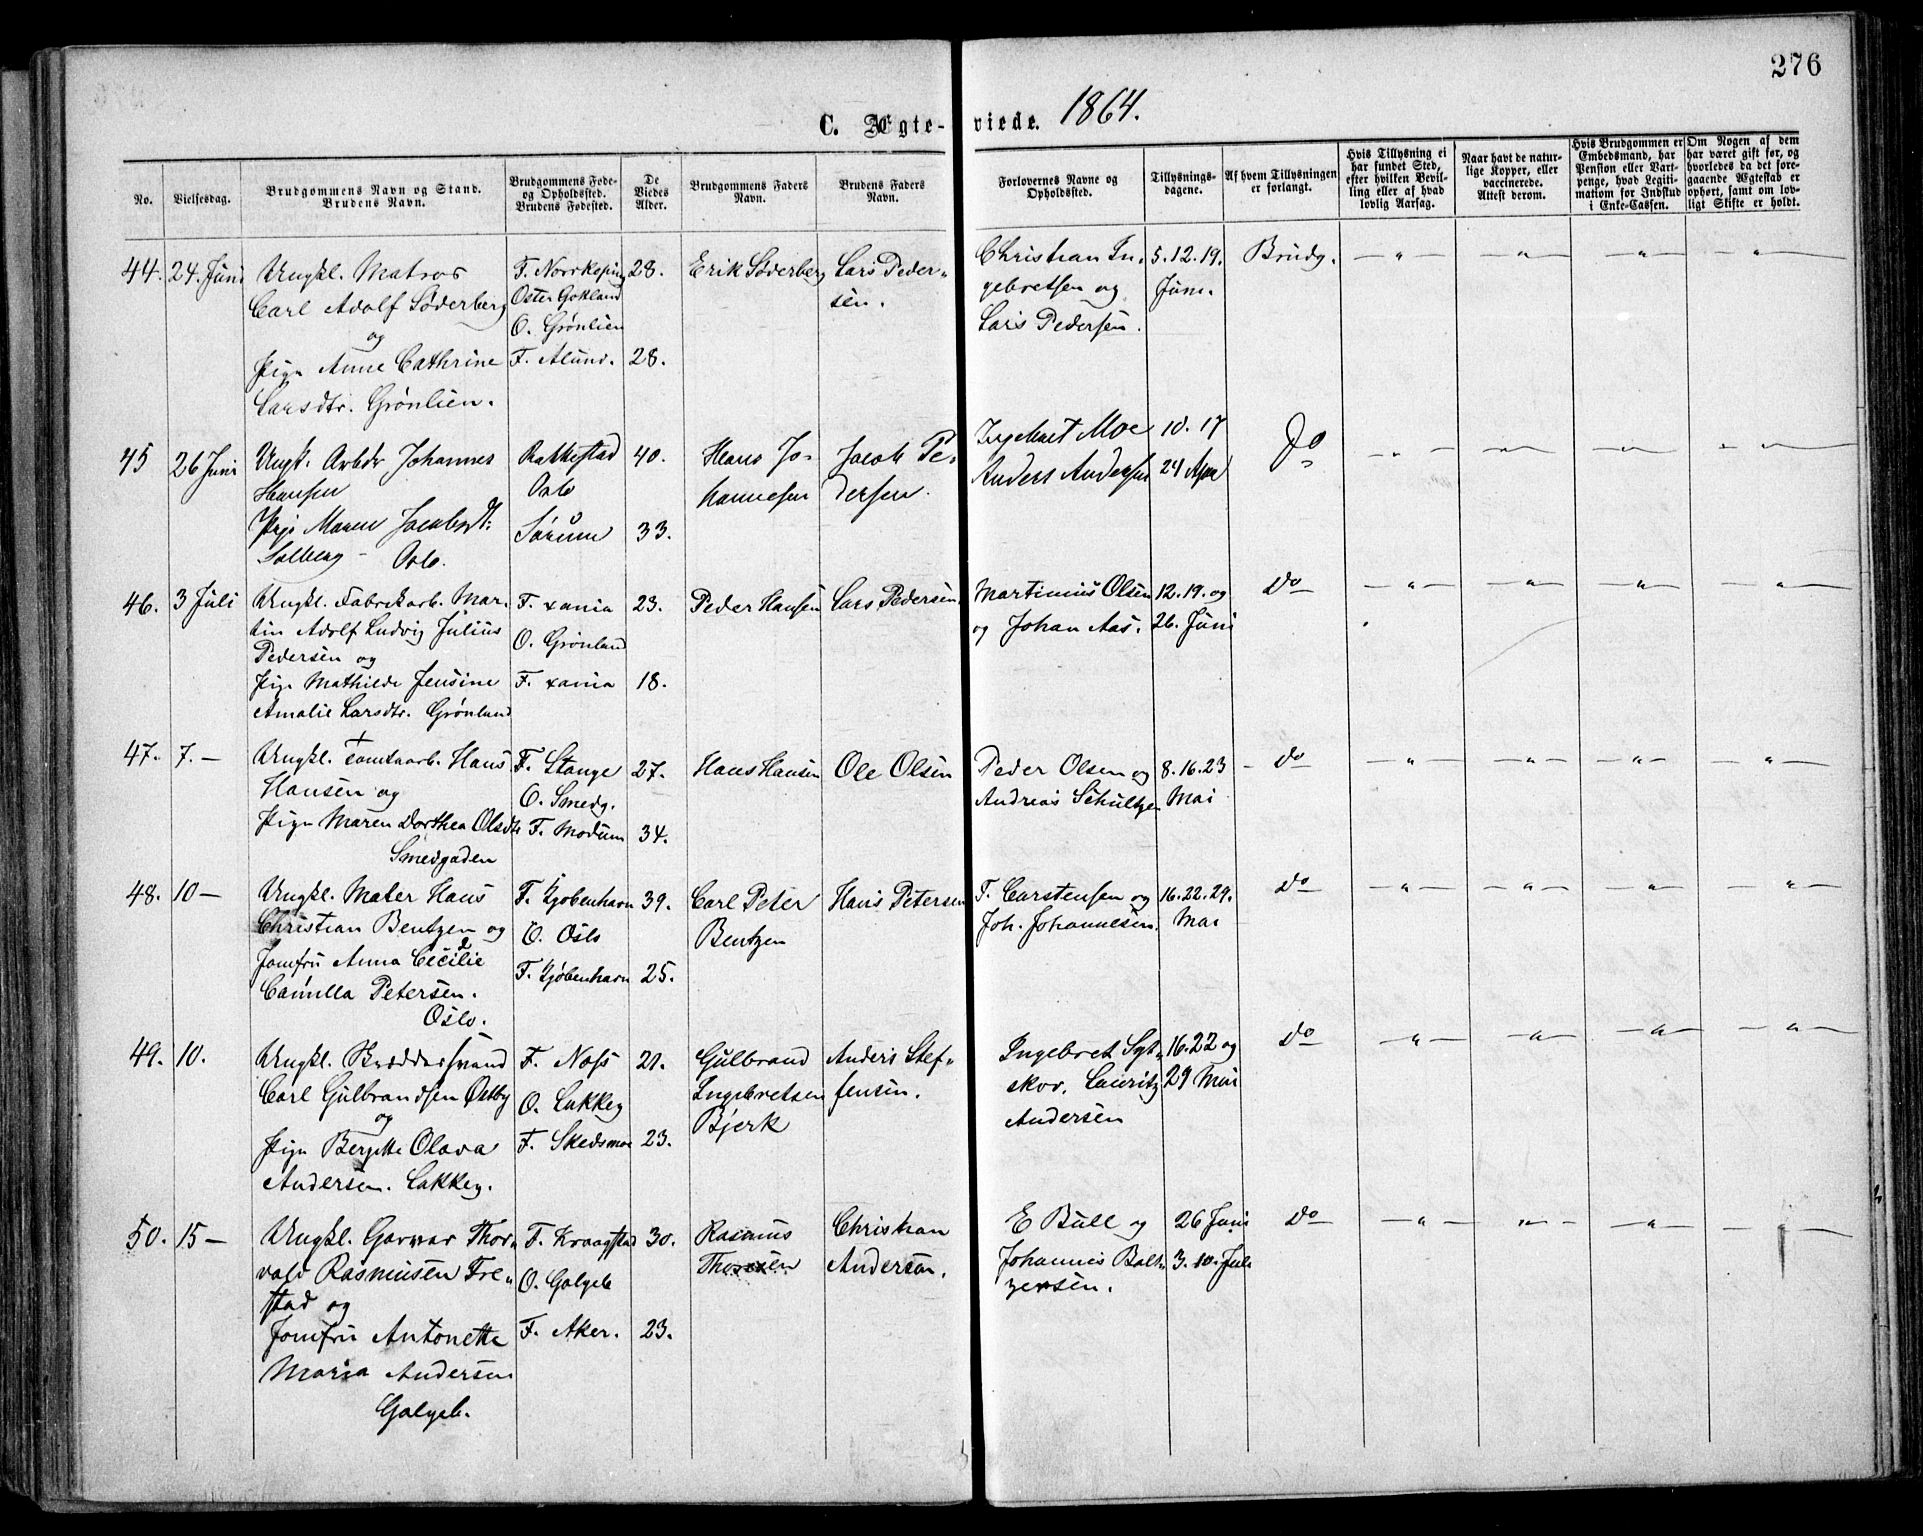 276
C. Ægte- viede. 1864.
No.
Vielsesdag.
Brudgommens Navn og Stand.
Brudens Navn.
Brudgommens Føde-
og Opholdssted.
Brudens Fødested.
De
Viedes
Alder.
Brudgommens Faders
Navn.
Brudens Faders
Navn.
Forlovernes Navne og
Opholdssted.
Tillysnings-
dagene.
Af hvem Tillysningen
er forlangt.
Hvis Tillysning ei
har fundet Sted,
efter hvilken Bevil-
ling eller af hvad
lovlig Aarsag.
Naar havt de natur-
lige Kopper, eller
vaccinerede.
Attest derom.
Hvis Brudgommen er
Embedsmand, har
Pension eller Vart-
penge, hvad Legiti-
mation for Indskud
i Enke-Cassen.
Om Nogen af dem
har været gift før, og
hvorledes da det fore-
gaaende Ægteskab er
ophørt, samt om lov-
ligt Skifte er holdt.
44. 24. Juni
Ungkl. Matros
Carl Adolf Søderberg
og
Pige Anne Cathrine
Larsdtr. Grønlien.
F. Norrkoping
Oster Gotland
O. Grønlien
F. Alund.
28.
28.
Erik Søderberg
Lars Peder-
sen.
Christian In-
gebretsen og
Lars Pedersen.
5. 12. 19.
Juni.
Brudg.
— " — — " — — " — — " —
45 26 Juni
Ungk. Arbdr Johannes
Hansen
Pige Maren Jacobsdt:
Solberg — Oslo.
Rakkestad
Oslo
Sørum
40.
33.
Hans Jo-
hannesen
Jacob Pe-
dersen.
Ingebret Moe
Anders Andersen
10. 17
24 Apr
Do
— " — — " — — " — — " —
46. 3 Juli
Ungkl. Fabrikarb. Mar-
tin Adolf Ludvig Julius
Pedersen og
Pige Mathilde Jensine
Amalie Larsdtr. Grønland
F. xania
O. Grønland
F. xania
23.
18.
Peder Hansen
Lars Pedersen.
Martinius Olsen
og Johan Aas.
12. 19. og
26. Juni
Do
— " — — " — — " — — " —
47. 7. —
Ungkl. Tomtearb. Hans
Hansen og
Pige Maren Dorthea Olsdtr
Smedgaden
F. Stange
O. Smedg.
F. Modum
27.
34.
Hans Hansen
Ole Olsen
Peder Olsen og
Andreas Schultzen
8. 16. 23
Mai
— Do
— " — — " — — " — — " —
48. 10 —
Ungkl. Maler Hans
Christian Bentzen og
Jomfru Anna Cecilie
Camilla Petersen.
Oslo.
F. Kjøbenhavn
O. Oslo
F. Kjøbenhavn
39.
25.
Carl Peter
Bentzen
Hans Petersen
F. Carstensen og
Joh. Johannesen.
16. 22. 29.
Mai
Do
— " — — " — — " — — " —
49. 10.
Ungkl.
Carl Gulbrandsen Østby
og
Pige Bergitte Olava
Andersen. Lakkeg.
F. Næss
O. Lakkeg
F. Skedsmoe
21.
23.
Gulbrand
Ingebretsen
Bjerk
Anders Stef-
fensen.
Ingebret Syt-
skov. Lauritz
Andersen
16. 22 og
29 Mai
Do
— " — — " — — " — — " —
50. 15 —
Ungkl. Garver Thor-
vald Rasmusen Fre-
stad og
Jomfru Antonette
Maria Andersen
Galgeb.
F. Kraagstad
O. Galgeb
F. Aker.
30.
23.
Rasmus
Christian
Andersen.
E Bull og
Johannes Balt-
zersen.
26 Juni
3. 10. Juli
Do
— " — — " — — " —